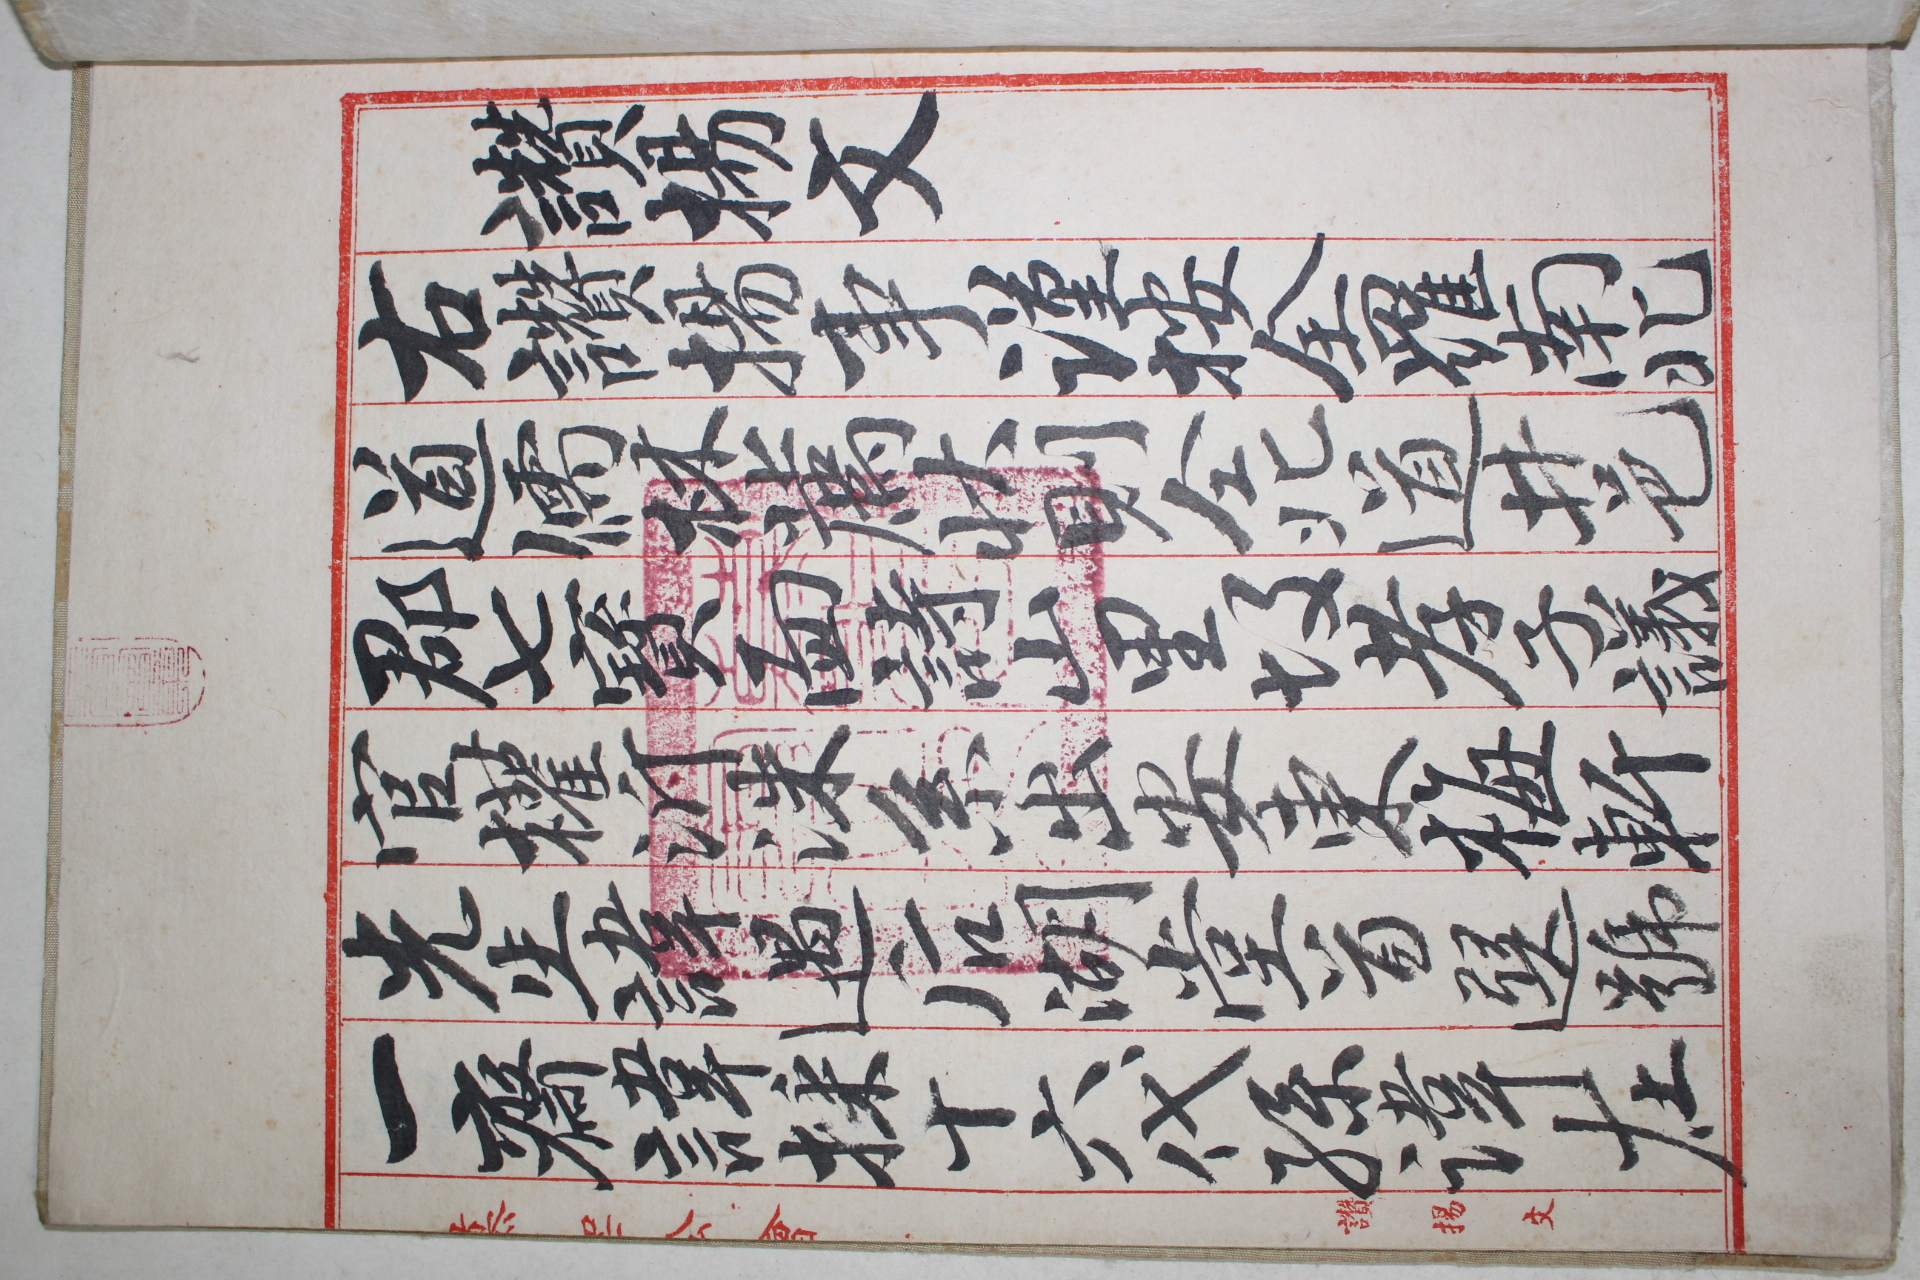 讚揚文
右讚揚事謹按全羅南北
道儒林薦狀則仝北道井邑
郡七寶面詩山里故孝子議
官權沂洙系出安東梅軒
先生諱遇后湖堂首選號
一齋諱採十六代孫諱在
慕聖公會
讚揚文